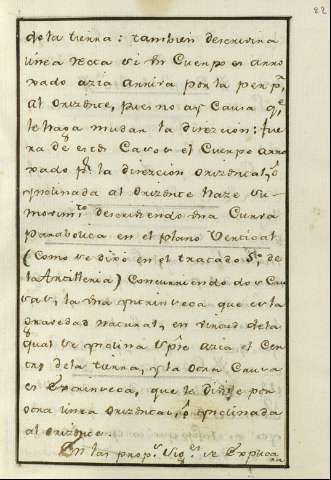 22
de la tierra: tambien descrivira
linea recta si un Cuerpo es arro
xado azia arriva por la perp.r
al Orizonte, pues no ay Causa q.e
le haga mudar la direzcion: fue
ra de estos Casos el Cuerpo arro
xado p.r la direccion Orizontal, o
ynclinada al Orizonte haze su
movim.to descriviendo una Curva
Parabolica en el plano Vertical
(Como se dixo en el tratado 5.to de
la Artilleria) Concurriendo dos Cau
sas, la una yntrinseca que es la
Gravedad Natural, en virtud de la
qual se ynclina s.pre azia el Cen
tro de la tierra, y la otra Causa
es Extrinseca, que le dirije por
otra linea Orizontal, o ynclinada
al orizonte.
En las prop.s sig.es se Explica
ra